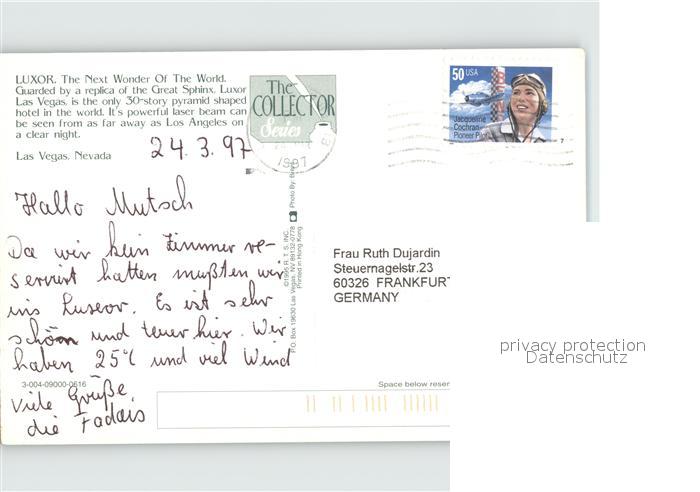 LUXOR. The Next Wonder Of The World.
Guarded by a replica of the Great Sphinx, Luxor
Las Vegas, is the only 30-story pyramid shaped
hotel in the world. It's powerful laser beam can
be seen from as far away as Los Angeles on
a clear night.
Las Vegas, Nevada
24.3.97
Hallo Mutsch
Da wir kein Zimmer re-
serviert hatten mußten wir
ins Luxeor. Es ist sehr
schön und teuer hier. Wir
haben 25°C und viel Wind
3-004-09000-0616
Viele Grüße
die Fadais
The
COLLECTOR
Series
1997
Photo By:
©1995 R.T.S. INC.
P.O. Box 19630 Las Vegas, NV 89132-0778
Printed in Hong Kong
50 USA
Jacqueline
Cochran
Pioneer Pilot
Frau Ruth Dujardin
Steuernagelstr.23
60326 FRANKFURT
GERMANY
Space below reser
privacy protection
Datenschutz